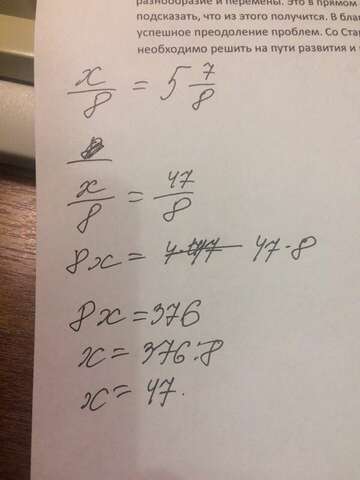 разнообразие и перемены. Это в прямом
подсказать, что из этого получится. В бла
успешное преодоление проблем. Со Ста
необходимо решить на пути развития и
x/8 = 5 7/8
x/8 = 47/8
8x = 47·8
8x = 376
x = 376:8
x = 47.